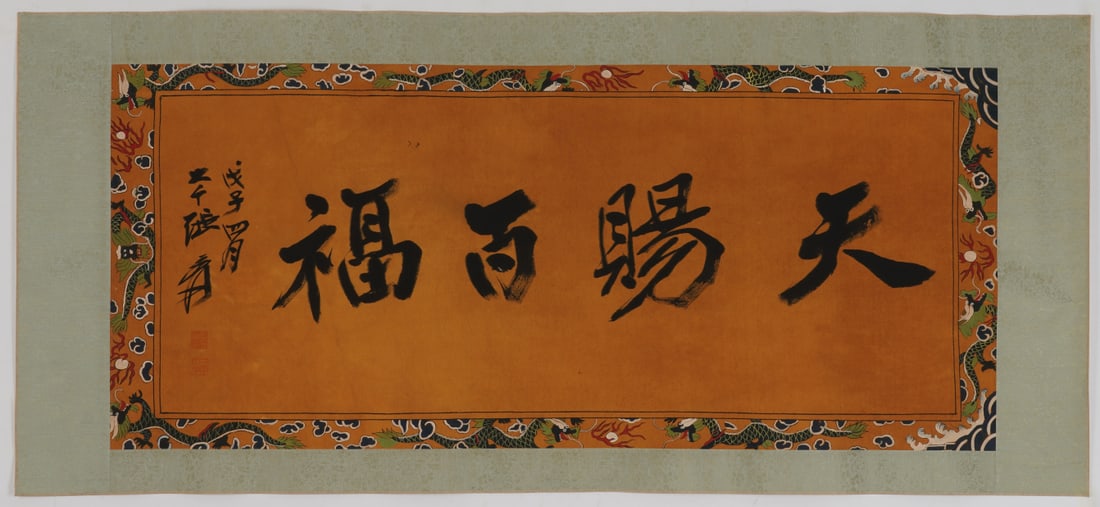 天賜百福
戊子四月
大千張爰